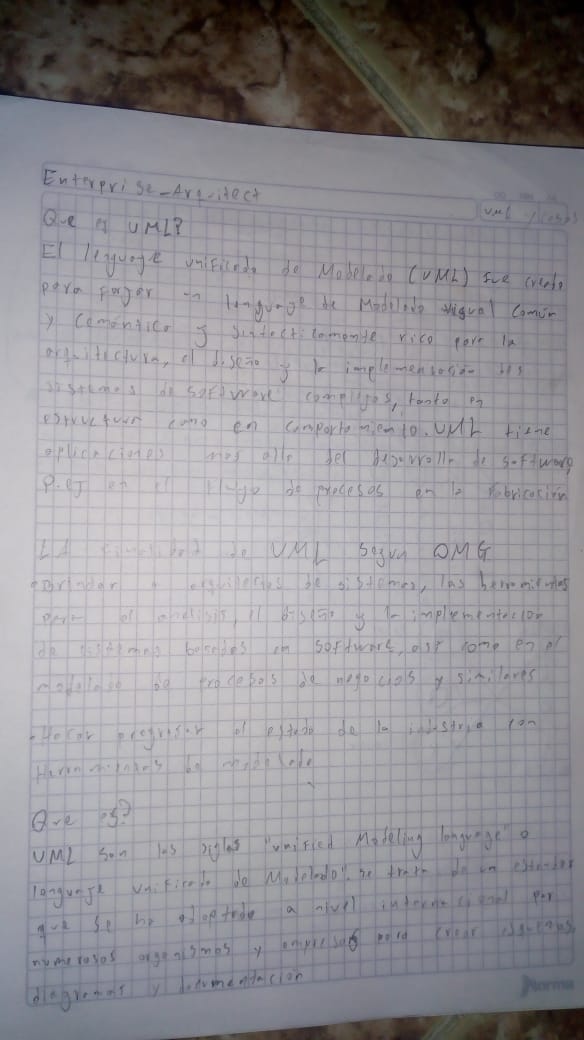 Enterprise_Arquitect
UML y cosas
Que es UML?
El lenguaje unificado de Modelado (UML) fue creado
para forjar un lenguaje de Modelado visual Común
y Cemántico y sintacticamente rico para la
arquitectura, el diseño y la implementación des
sistemas de software complejos, tanto en
estructura como en comportamiento. UML tiene
aplicaciones mas alla del desarrollo de software,
P.ej en el Flujo de procesos en la Fabricación
LA finalidad de UML segun OMG
•Brindar a arquitectos de sistemas, las herramientas
para el analisis, el diseño y la implementacion
de sistemas basados en software, asi como en el
modelado de procesos de negocios y similares
•Hacer progresar el estado de la industria con
Herramientas de modelado
Que es?
UML son las siglas "unified Modeling language" o
lenguaje Unificado de Modelado". se trata de un estandar
que se ha adoptado a nivel internacional por
numerosos organismos y empresas para crear esquemas,
diagramas y documentacion
Norma